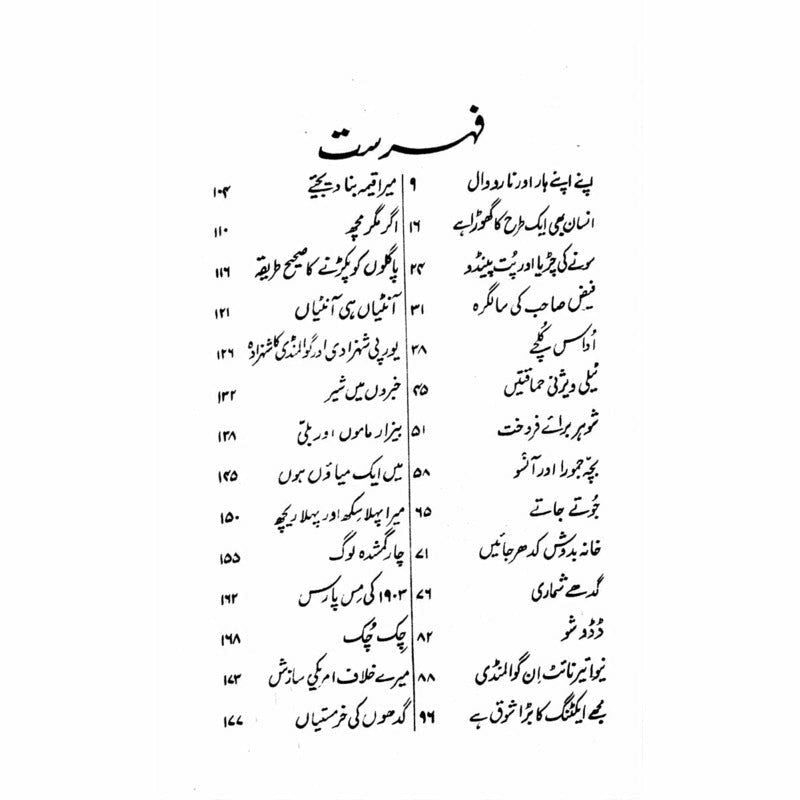 فہرست
پنے اپنے ہار اور نارووال ۹
انسان بھی ایک طرح کا گھوڑا ہے ۱۶
سونے کی چڑیا اور پُت پینڈو ۲۴
فیض صاحب کی سالگرہ ۳۱
اُداس کُلچے ۳۸
ٹیلی ویژنی حماقتیں ۴۵
شوہر برائے فروخت ۵۱
بچہ جمورا اور آنسو ۵۸
جُوتے جاتے ۶۵
خانہ بدوش کدھر جائیں ۷۱
گدھے شماری ۷۶
ڈڈو شو ۸۲
نیو ائیر نائٹ اِن گوالمنڈی ۸۸
مجھے ایکٹنگ کا بڑا شوق ہے ۹۶
میرا قیمہ بنا دیجئے ۱۰۴
اگر مگر مچھ ۱۱۰
پاگلوں کو پکڑنے کا صحیح طریقہ ۱۱۶
آنٹیاں ہی آنٹیاں ۱۲۱
یورپی شہزادی اور گوالمنڈی کا شہزادہ ۱۲۶
خبروں میں شیر ۱۳۲
بیزار ماموں اور بلّی ۱۳۸
میں ایک میاؤں ہوں ۱۴۵
میرا پہلا سکھ اور پہلا ریچھ ۱۵۰
چار گمشدہ لوگ ۱۵۵
۱۹۰۳ کی مِس پارس ۱۶۲
چِک چُک ۱۶۸
میرے خلاف امریکی سازش ۱۷۳
گدھوں کی خرمستیاں ۱۷۷